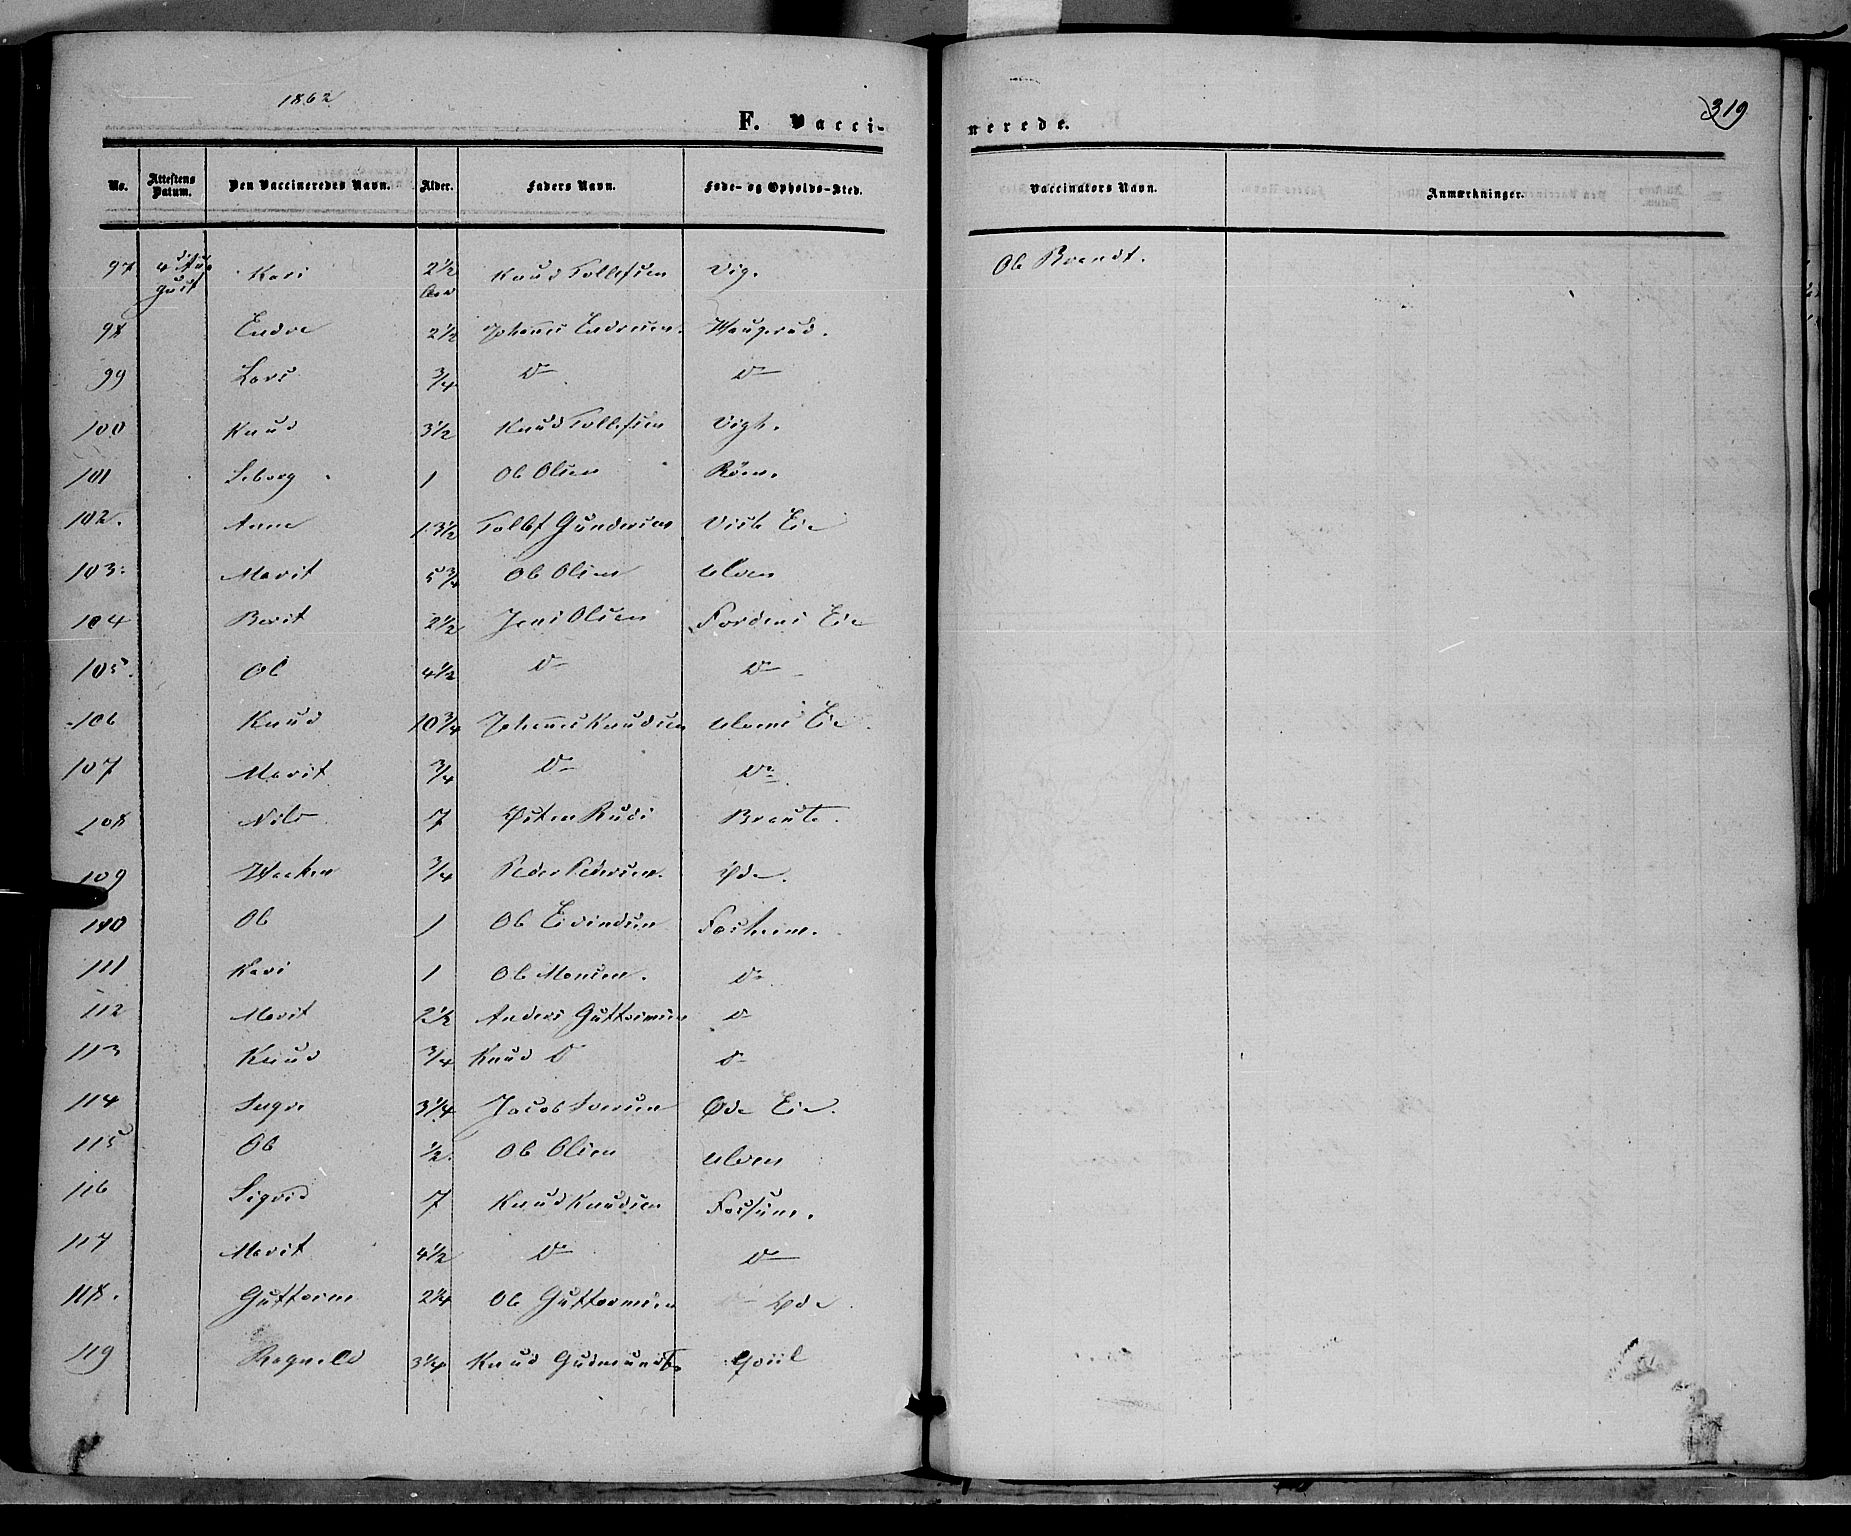 1862
F. Vacci-
nerede.
319
No. Attestens Datum. Den Vaccineredes Navn. Alder. Faders Navn. Føde- og Opholds-Sted. Vaccinators Navn. Anmærkninger.
97 4 d Au- gust Kari 2 1/2 Knud Tollefsen Vig. Ole Brandt.
98 Endre 2 1/2 Johannes Endresen. Haugerud.
99 Lars 3/4 Do Do
100 Knud 3 1/2 Knud Tollefsen Vigh.
101 Seborg 1 Ole Olsen Röen.
102. Anne 13 1/2 Tollef Gundersen Viste Eie
103. Marit 5 3/4 Ole Olsen Ulven
104 Berit 2 1/2 Jens Olsen Fordens Eie
105. Ole 4 1/2 Do Do
106 Knud 10 3/4 Johannes Knudsen Ulvens Eie.
107 Marit 3/4 Do Do
108 Nils 7 Østen Rudi Braute.
109 Haaken 3/4 Peder Pedersen. Øde.
110 Ole 1 Ole Eivindsen Fosheim.
111 Kari 1 Ole Monsen. Do
112 Marit 2 1/2 Anders Guttormsen Do
113 Knud 3/4 Knud Do Do
114 Sigri 3 1/4 Jacob Iversen Øde Eie.
115 Ole 1/2. Ole Olsen Ulven
116 Sigrid 7 Knud Knudsen Fossum.
117 Marit 4 1/2 Do Do
118. Guttorm 2 1/4 Ole Guttormsen Øde
119 Ragnild 3 1/4 Knud Gudmunds.